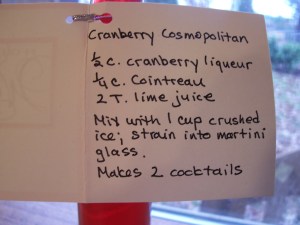 Cranberry Cosmopolitan
½ c. cranberry liqueur
¼ c. Cointreau
2 T. lime juice
Mix with 1 cup crushed
ice; strain into martini
glass.
Makes 2 cocktails